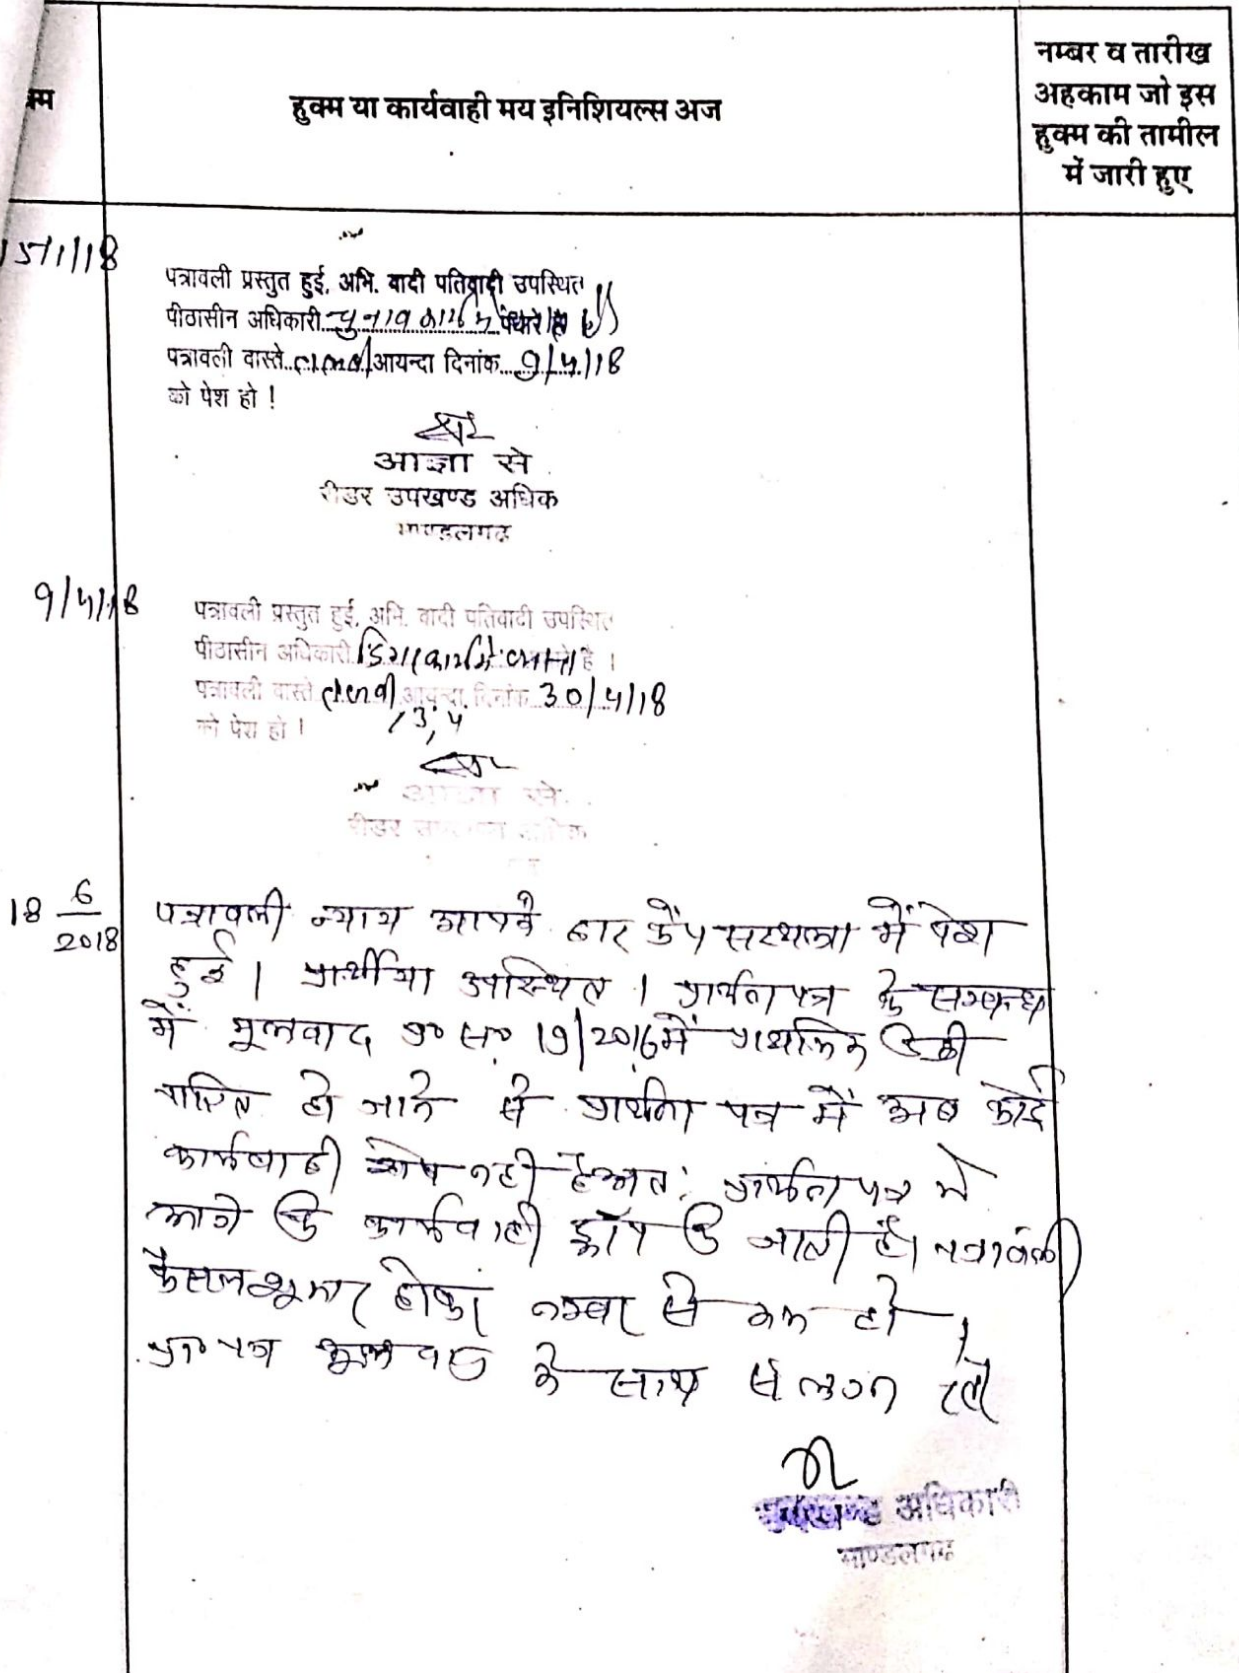 क्म
हुक्म या कार्यवाही मय इनिशियल्स अज
नम्बर व तारीख
अहकाम जो इस
हुक्म की तामील
में जारी हुए
15/1/18
पत्रावली प्रस्तुत हुई, अभि. वादी पतिवादी उपस्थित
पीठासीन अधिकारी चुनाव कार्य में पधारे है
पत्रावली वास्ते तलबी आयन्दा दिनांक 9/4/18
को पेश हो !
आज्ञा से
रीडर उपखण्ड अधिक
माण्डलगढ
9/4/18
पत्रावली प्रस्तुत हुई, अभि. वादी पतिवादी उपस्थित
पीठासीन अधिकारी है ।
पत्रावली वास्ते तलबी आयन्दा दिनांक 30/4/18
को पेश हो !
आज्ञा से
रीडर उपखण्ड अधिक
18 6/2018
पत्रावली न्याय आपके द्वार कैंप सरथला में पेश
हुई । प्रार्थीया उपस्थित । प्रार्थना पत्र के सम्बन्ध
में मूलवाद प्र० स० 19/2016 में प्राथमिक डिक्री
पारित हो जाने से प्रार्थना पत्र में अब कोई
कार्यवाही शेष नही है अत: प्रार्थना पत्र मे
आगे कि कार्यवाही ड्रॉप कि जाती है। पत्रावली
फैसल शुमार होकर नम्बर से कम हो ।
प्रा० पत्र मूल वाद के साथ संलग्न रहे
उपखण्ड अधिकारी
माण्डलगढ